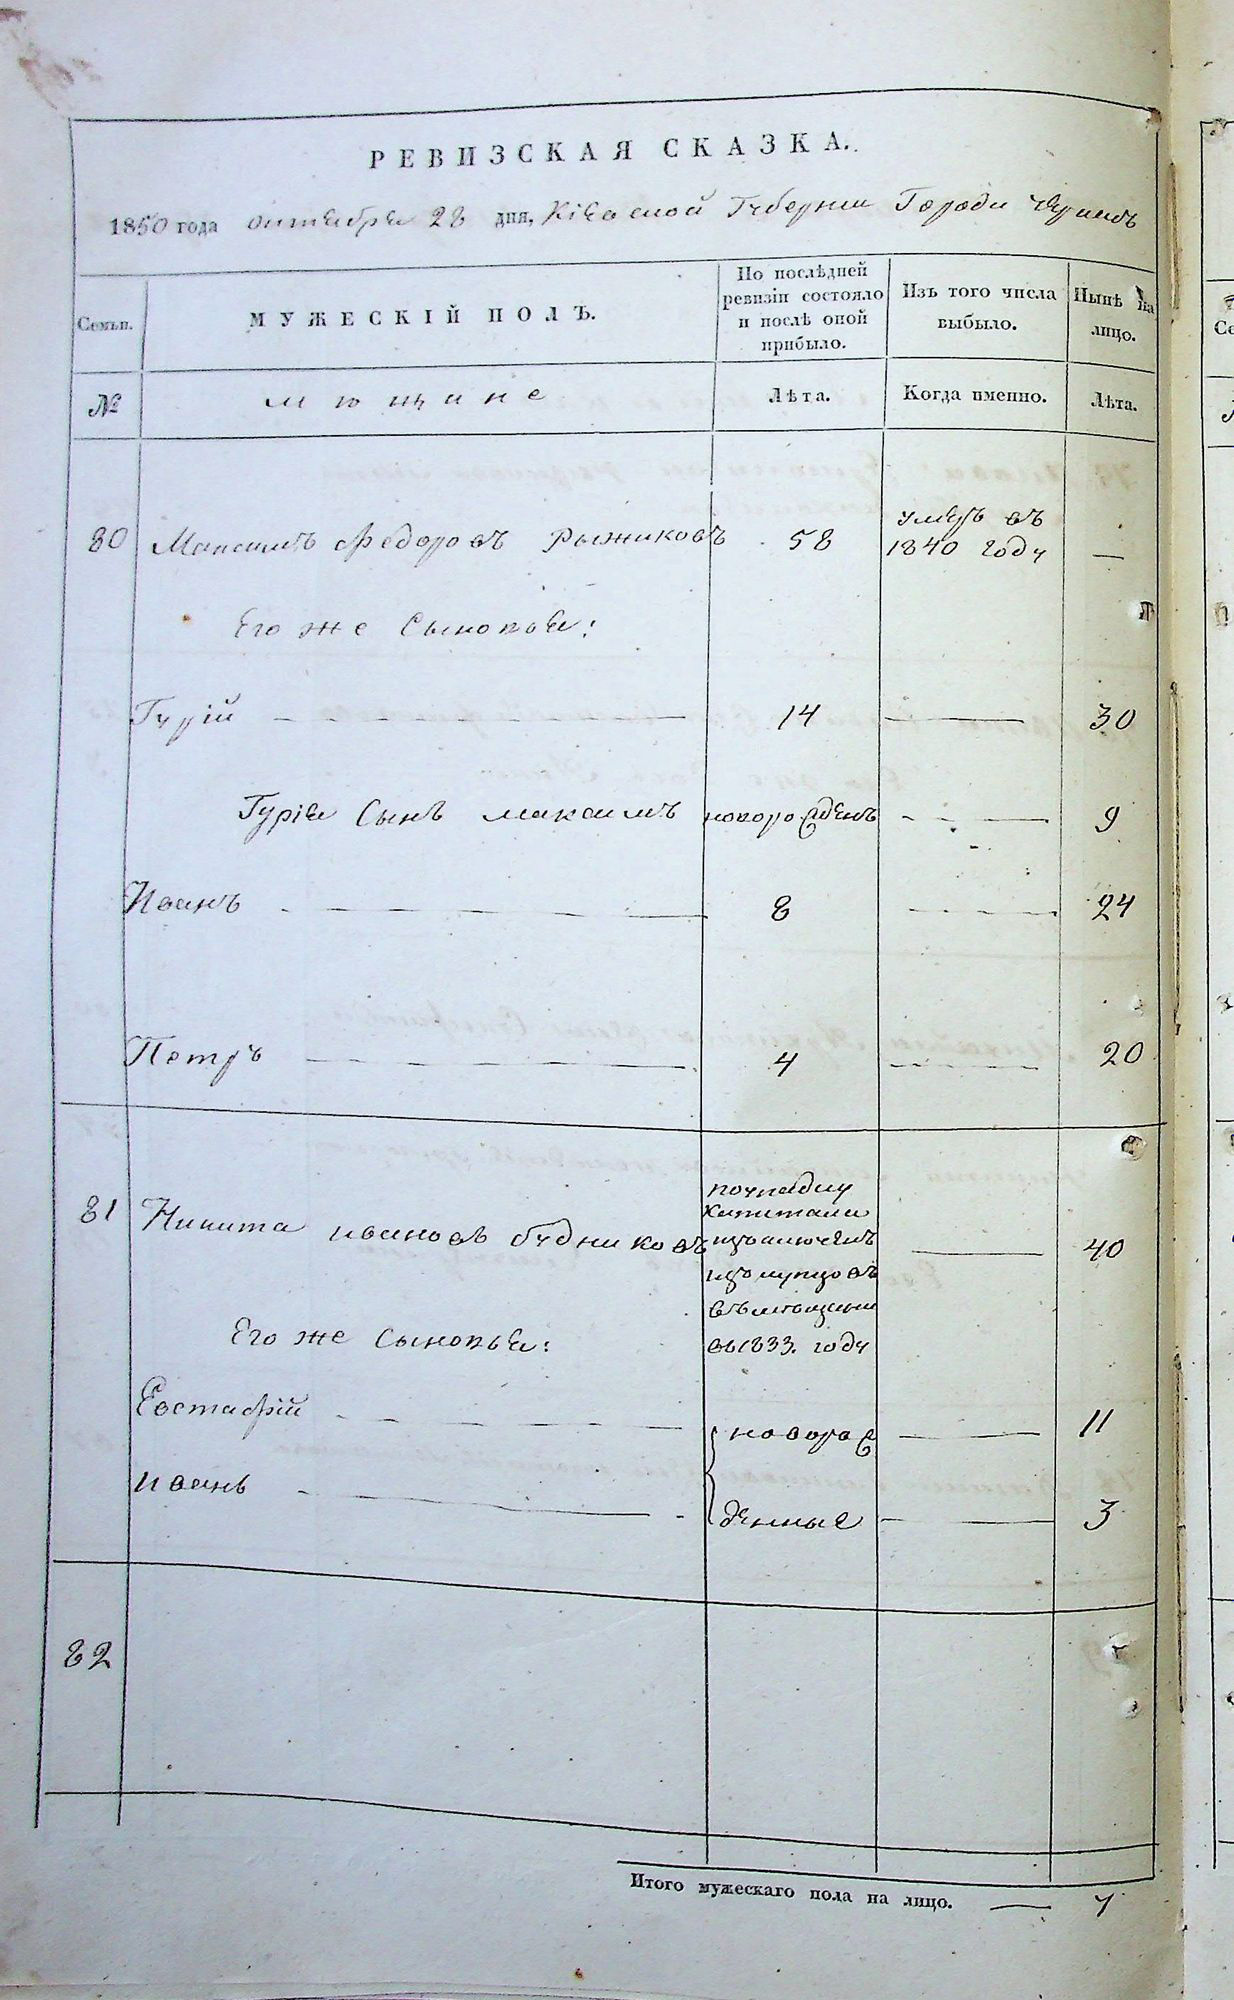 РЕВИЗСКАЯ СКАЗКА.
1850 года октября 28 дня, Кіевской Губерніи Города
Семьи.
МУЖЕСКІЙ ПОЛЪ.
По послѣдней
ревизіи состояло
и послѣ оной
прибыло.
Изъ того числа
выбыло.
Нынѣ на
лицо.
№
мѣщане
Лѣта.
Когда именно.
Лѣта.
80 Максимъ Федоровъ Рыжиковъ 58 умеръ въ
1840 году —
Его же Сыновья:
Гурій 14 — 30
Гурія Сынъ максимъ новорожденъ — 9
Иванъ 8 — 24
Петръ 4 — 20
81 Никита ивановъ будниковъ
капитала
изъключенъ — 40
изъ купцовъ
въ мѣщане
въ 1833. году
Его же сыновья:
Евстафій — новорож — 11
иванъ — денные — 3
82
Итого мужескаго пола на лицо. — 7